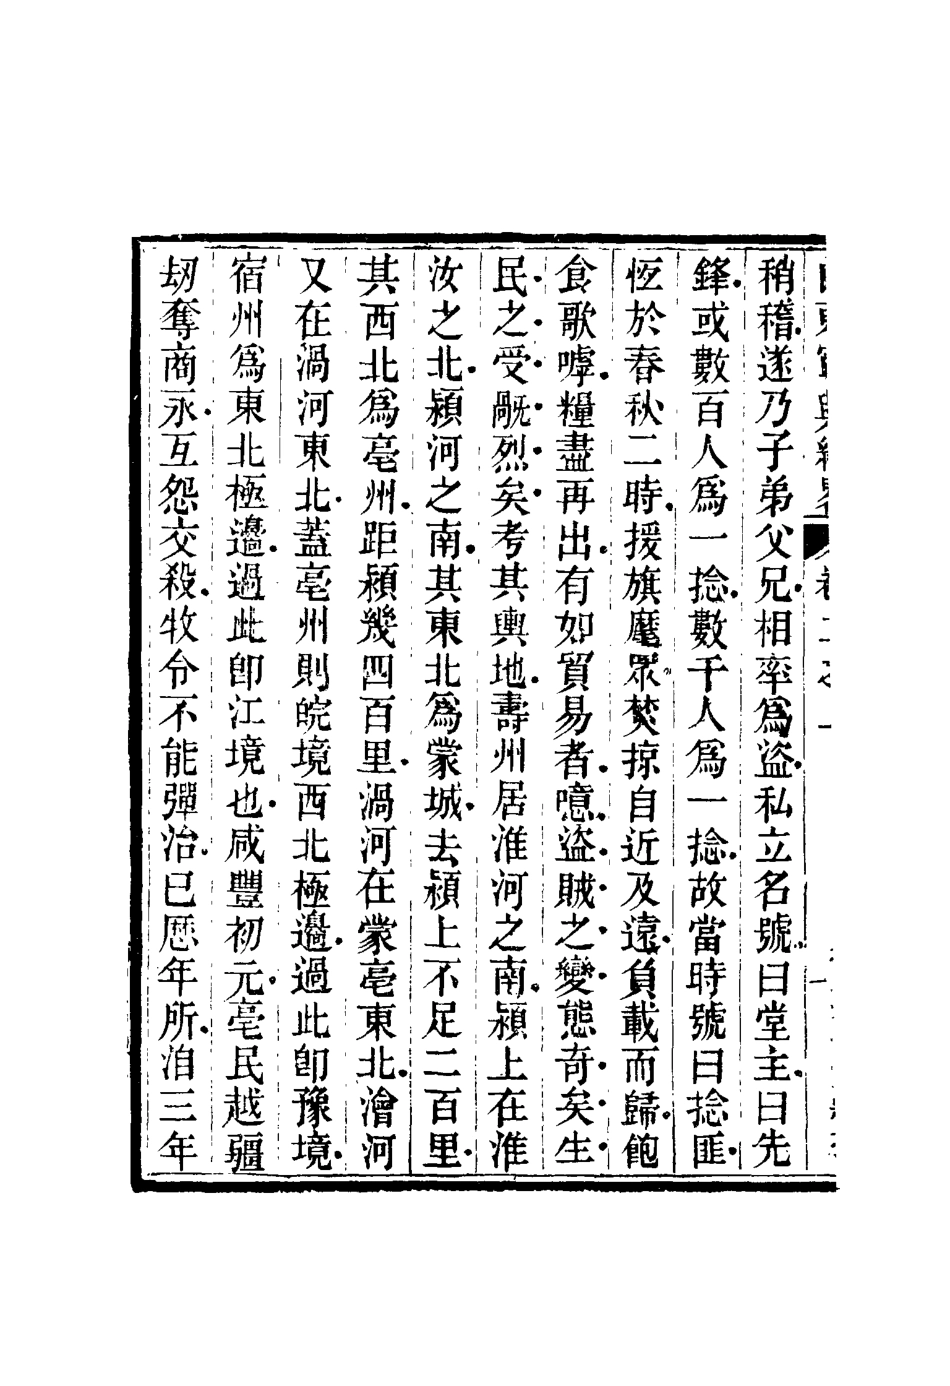 稍稽遂乃子弟父兄相率爲盜私立名號曰堂主曰先
鋒或數百人爲一捻數千人爲一捻故當時號曰捻匪
恆於春秋二時援旗麾眾焚掠自近及遠負載而歸飽
食歌嘑糧盡再出有如貿易者噫盜賊之變態奇矣生
民之受毆烈矣考其輿地壽州居淮河之南潁上在淮
汝之北潁河之南其東北爲蒙城去潁上不足二百里
其西北爲亳州距潁幾四百里渦河在蒙亳東北澮河
又在渦河東北蓋亳州則皖境西北極邊過此卽豫境
宿州爲東北極邊過此卽江境也咸豐初元亳民越疆
刼奪商永互怨交殺牧令不能彈治已歷年所洎三年